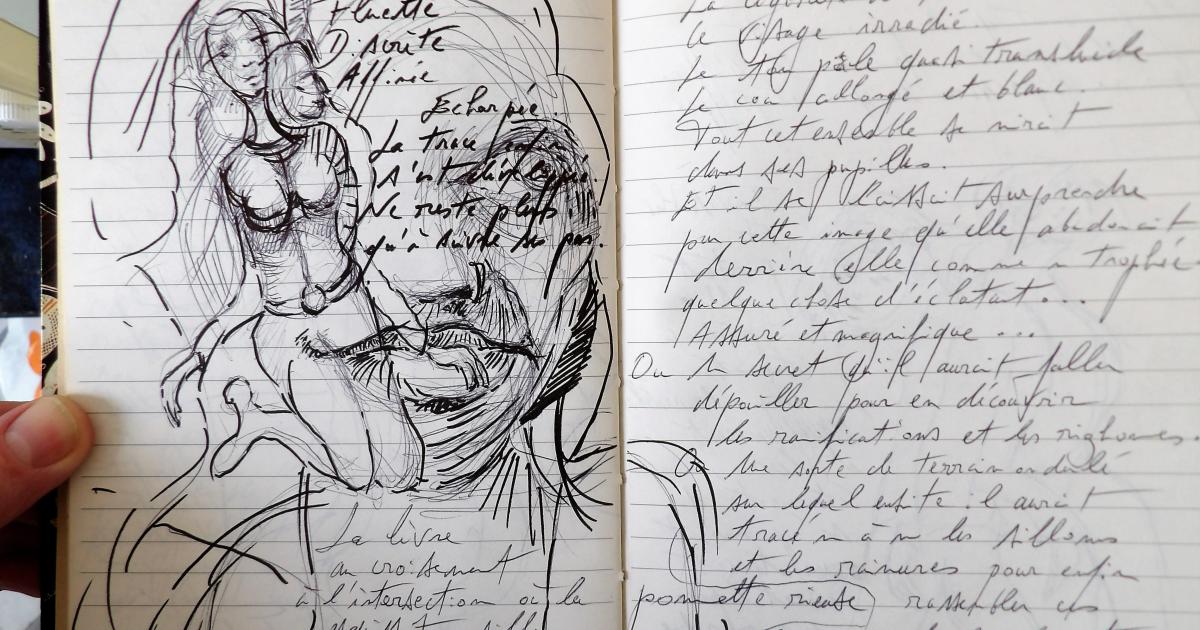 Fluette
Discrète
Affinée
Echarpée
La trace enfin
s'est développée.
Ne reste plus
qu'à suivre ses pas.
La lèvre
au croisement
à l'intersection où la
La
le visage irradié
le pâle quasi translucide
le cou allongé et blanc.
Tout cet ensemble se mirait
dans ses pupilles.
Et il se laissait surprendre
par cette image qu'elle abandonait
derrière elle comme un trophée
quelque chose d'éclatant...
Assuré et magnifique ...
Ou un secret qu'il aurait fallu
dépouiller pour en découvrir
les ramifications et les
Ou une sorte de terrain ondulé
sur lequel ensuite il aurait
tracé un à un les sillons
et les rainures pour enfin
pommette rieuse rassembler ces